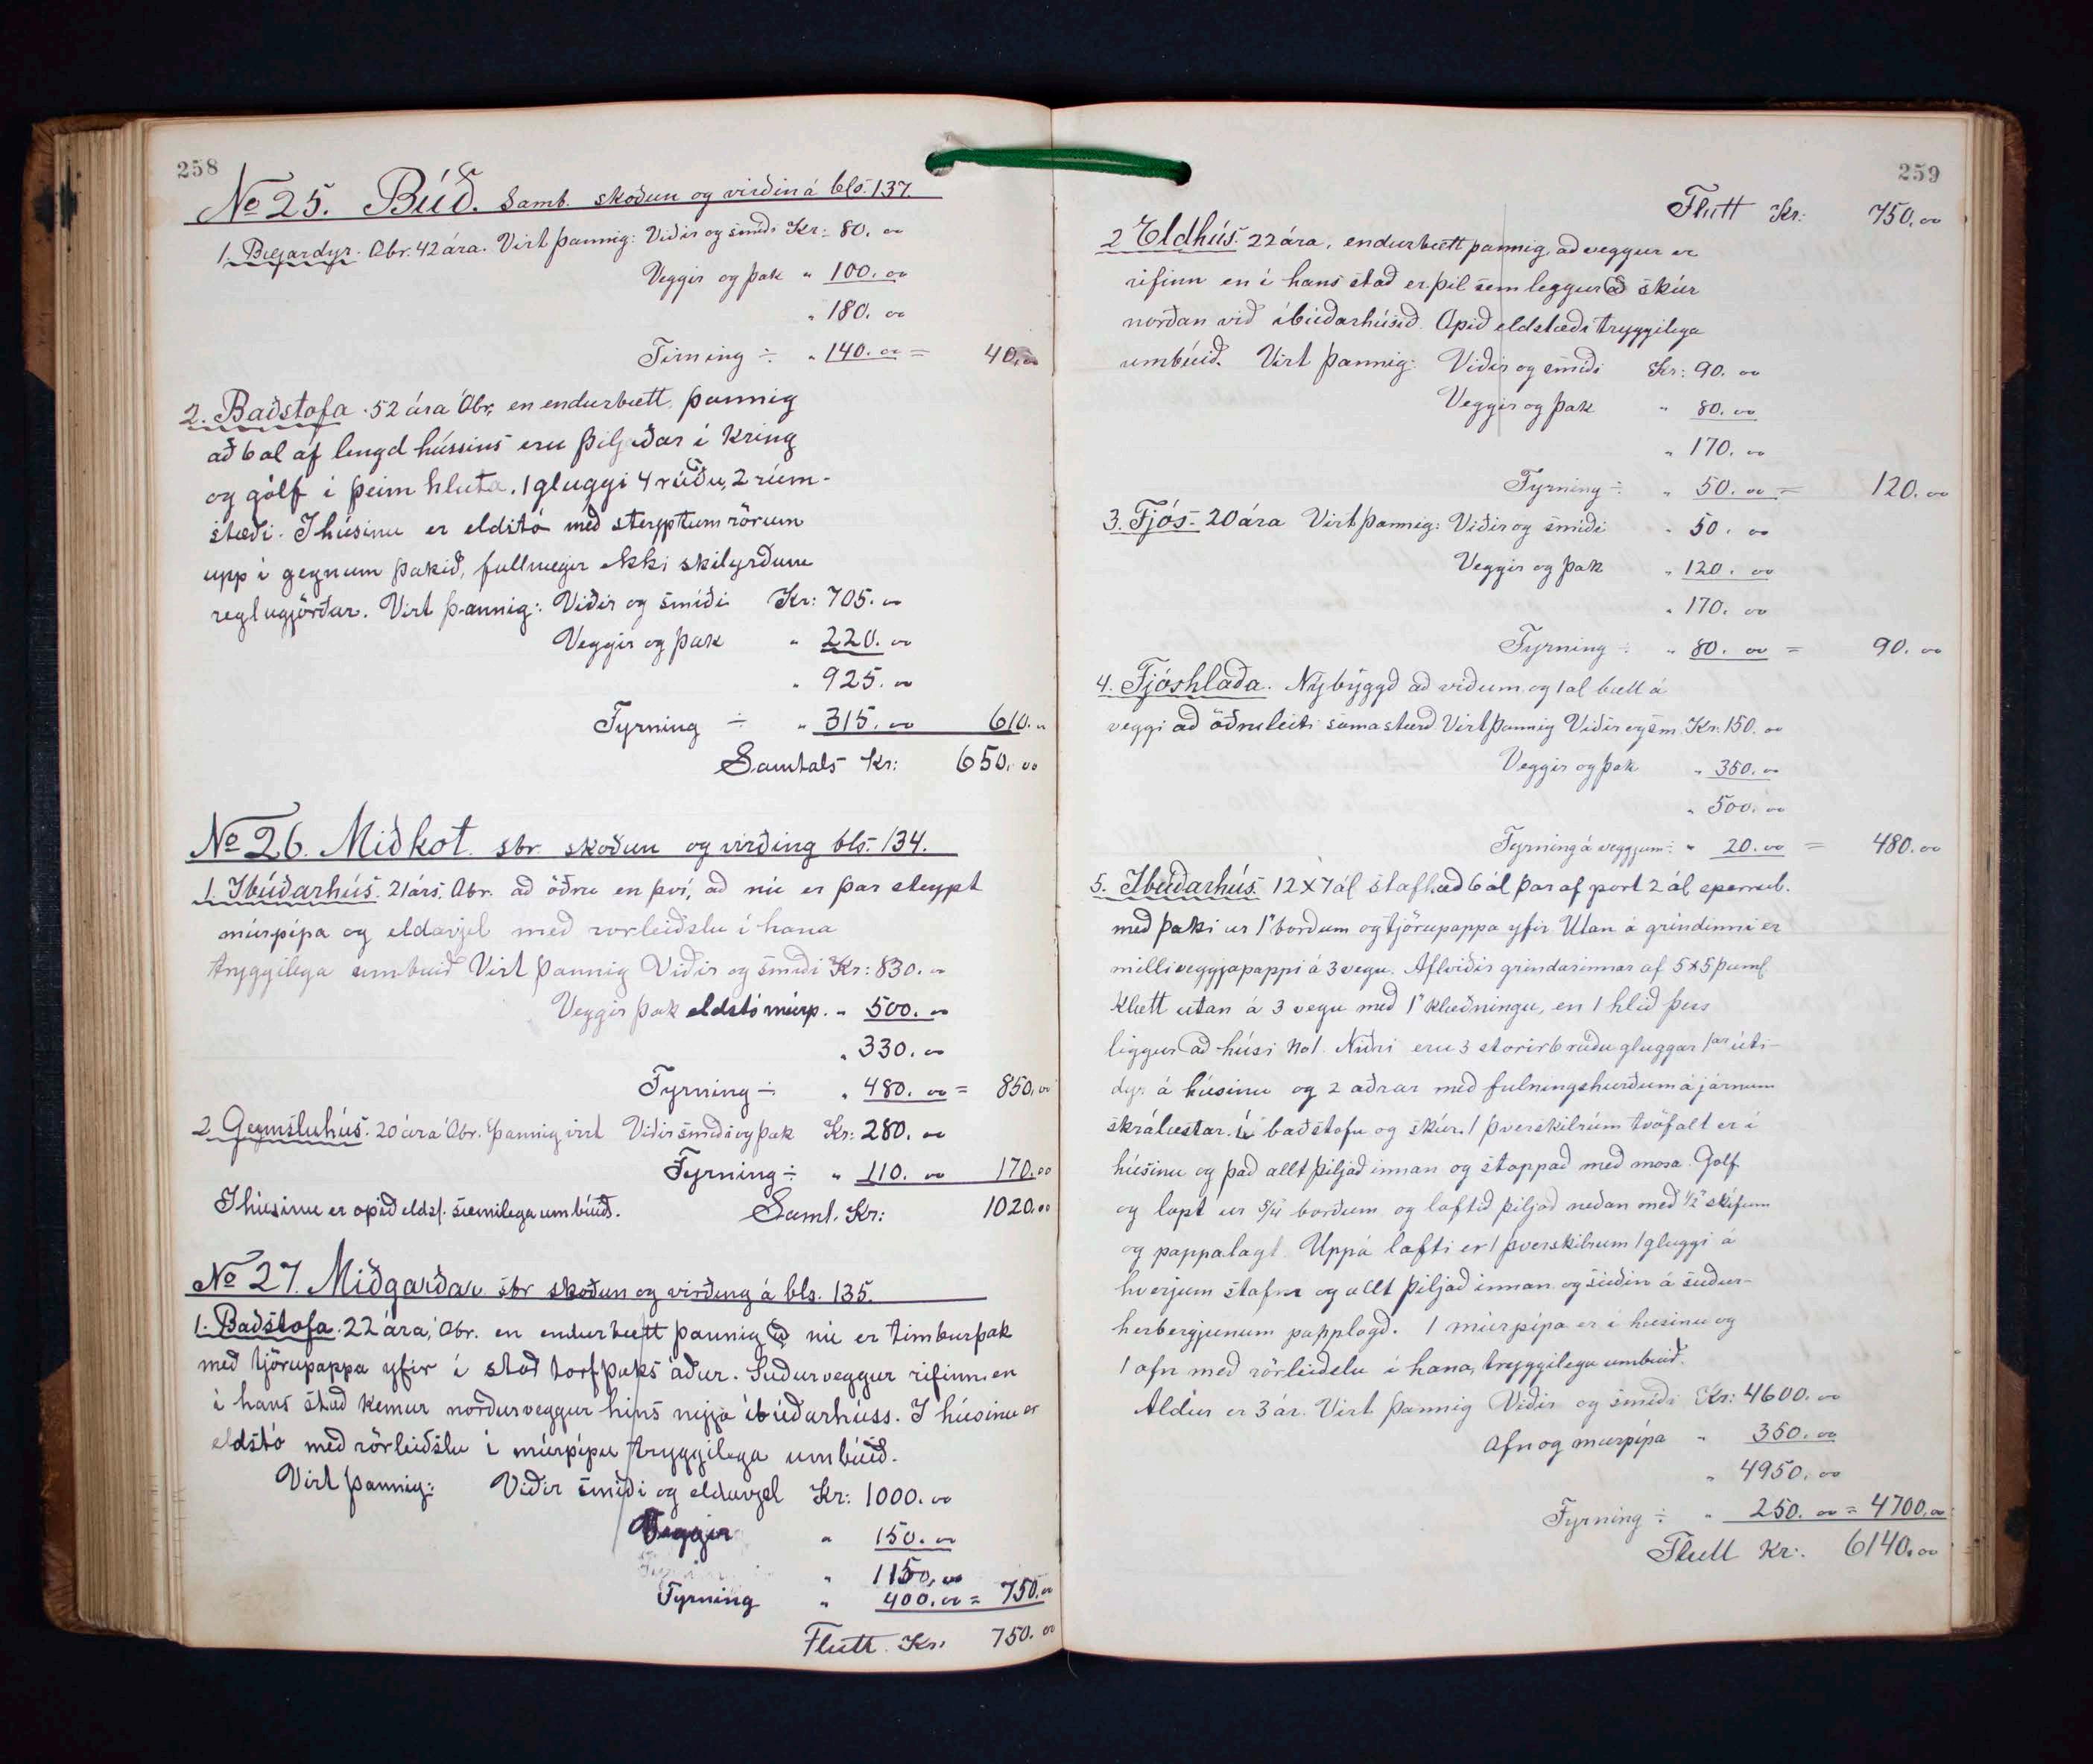 258
No 25. Búð. Samb. skoðun og virðin á bls. 137.
1. Bæjardyr. Obr. 42 ára. Virt þannig: Viðir og smíði Kr: 80. oo
Veggir og þak " 100. oo
" 180. oo
Tirning ÷ " 140. oo = 40. oo
2. Baðstofa. 52 ára Obr, en endurbætt, þannig
að 6 al af lengd hússins eru þiljaðar í kring
og gólf í þeim hluta. 1 gluggi 4 rúðu, 2 rúm-
stæði. Í húsinu er eldstó með steyptum rörum
upp í gegnum þakið, fullnægir ekki skilyrðum
reglugjörðar. Virt þannig: Viðir og smíði Kr: 705. oo
Veggir og þak " 220. oo
" 925. oo
Fyrning ÷ " 315. oo 610. oo
Samtals Kr: 650. oo
No 26. Miðkot. sbr. skoðun og virðing bls. 134.
1. Íbúðarhús. 21 árs. Obr. að öðru en því, að nú er þar steypt
múrpípa og eldavjel með rorleiðslu í hana
tryggilega umbuið Virt þannig Viðir og smiði Kr: 830. oo
Veggir þak eldstó múrp. " 500. oo
" 330. oo
Fyrning ÷ " 480. oo = 850. oo
2. Geymsluhús. 20 ára Obr. þannig virt Viðir smiði og þak Kr: 280. oo
Fyrning ÷ " 110. oo 170. oo
Í húsinu er opið elds. sæmilega umbúið. Saml. Kr: 1020. oo
No 27. Miðgarðar sbr skoðun og virðing á bls. 135.
1. Baðstofa. 22 ára, Obr. en endurbætt þannig að nú er timburþak
með tjörupappa yfir í stað torfþaks áður. Suðurveggur rifinn en
í hans stað kemur norðurveggur hins nýja íbúðarhúss. Í húsinu er
eldstó með rörleiðslu í múrpípu tryggilega umbúið.
Virt þannig: Viðir smiði og eldavjel Kr: 1000. oo
Veggir " 150. oo
" 1150. oo
Fyrning " 400. oo = 750. oo
Flutt Kr: 750. oo
259
Flutt Kr: 750. oo
2 Eldhús. 22 ára, endurbætt þannig, að veggur er
rifinn en í hans stað er þil sem leggur að skúr
norðan við íbúðarhúsið. Opið eldstæði tryggilega
umbúið. Virt þannig: Viðir og smíði Kr: 90. oo
Veggir og þak " 80. oo
" 170. oo
Fyrning ÷ " 50. oo = 120. oo
3. Fjós. 20 ára Virt þannig: Viðir og smíði " 50. oo
Veggir og þak " 120. oo
" 170. oo
Fyrning ÷ " 80. oo = 90. oo
4. Fjóshlaða. Nýbyggð að viðum og 1 al bætt á
veggi að öðru leiti sama stærð Virt þannig Viðir og sm. Kr. 150. oo
Veggir og þak " 350. oo
" 500. oo
Fyrning á veggjum ÷ " 20. oo = 480. oo
5. Íbúðarhús. 12 x 7 ál stafhæð 6 ál þar af port 2 ál sperrub.
með þaki ur 1" borðum og tjörupappa yfir Utan á grindinni er
milliveggjapappi á 3 vegu. Aflviðir grindarinnar af 5 x 5 þuml.
Klætt utan á 3 vegu með 1" klæðningu, en 1 hlið þess
liggur að húsi No 1. Niðri eru 3 storir 6 ruðu gluggar 1ar úti-
dyr á húsinu og 2 aðrar með fulningshurðum á járnum
skrálæstar. Ú baðstofu og skúr. 1 þverskilrúm tvöfalt er í
húsinu og það allt þiljað innan og stoppað með mosa. Golf
og lopt ur 5/4" borðum og loftið þiljað neðan með 1/2" skífum
og pappalagt. Uppá lofti er 1 þverskilrum 1 gluggi á
hverjum stafni og allt þiljað innan og súðin á suður-
herbergjunum papplogð. 1 múrpípa er í húsinu og
1 ofn með rörleiðslu í hana, tryggilega umbúið.
Aldur er 3 ár. Virt þannig Viðir og smíði Kr: 4600. oo
Ofn og murpípa " 350. oo
" 4950. oo
Fyrning ÷ " 250. oo = 4700. oo
Flutt Kr: 6140. oo